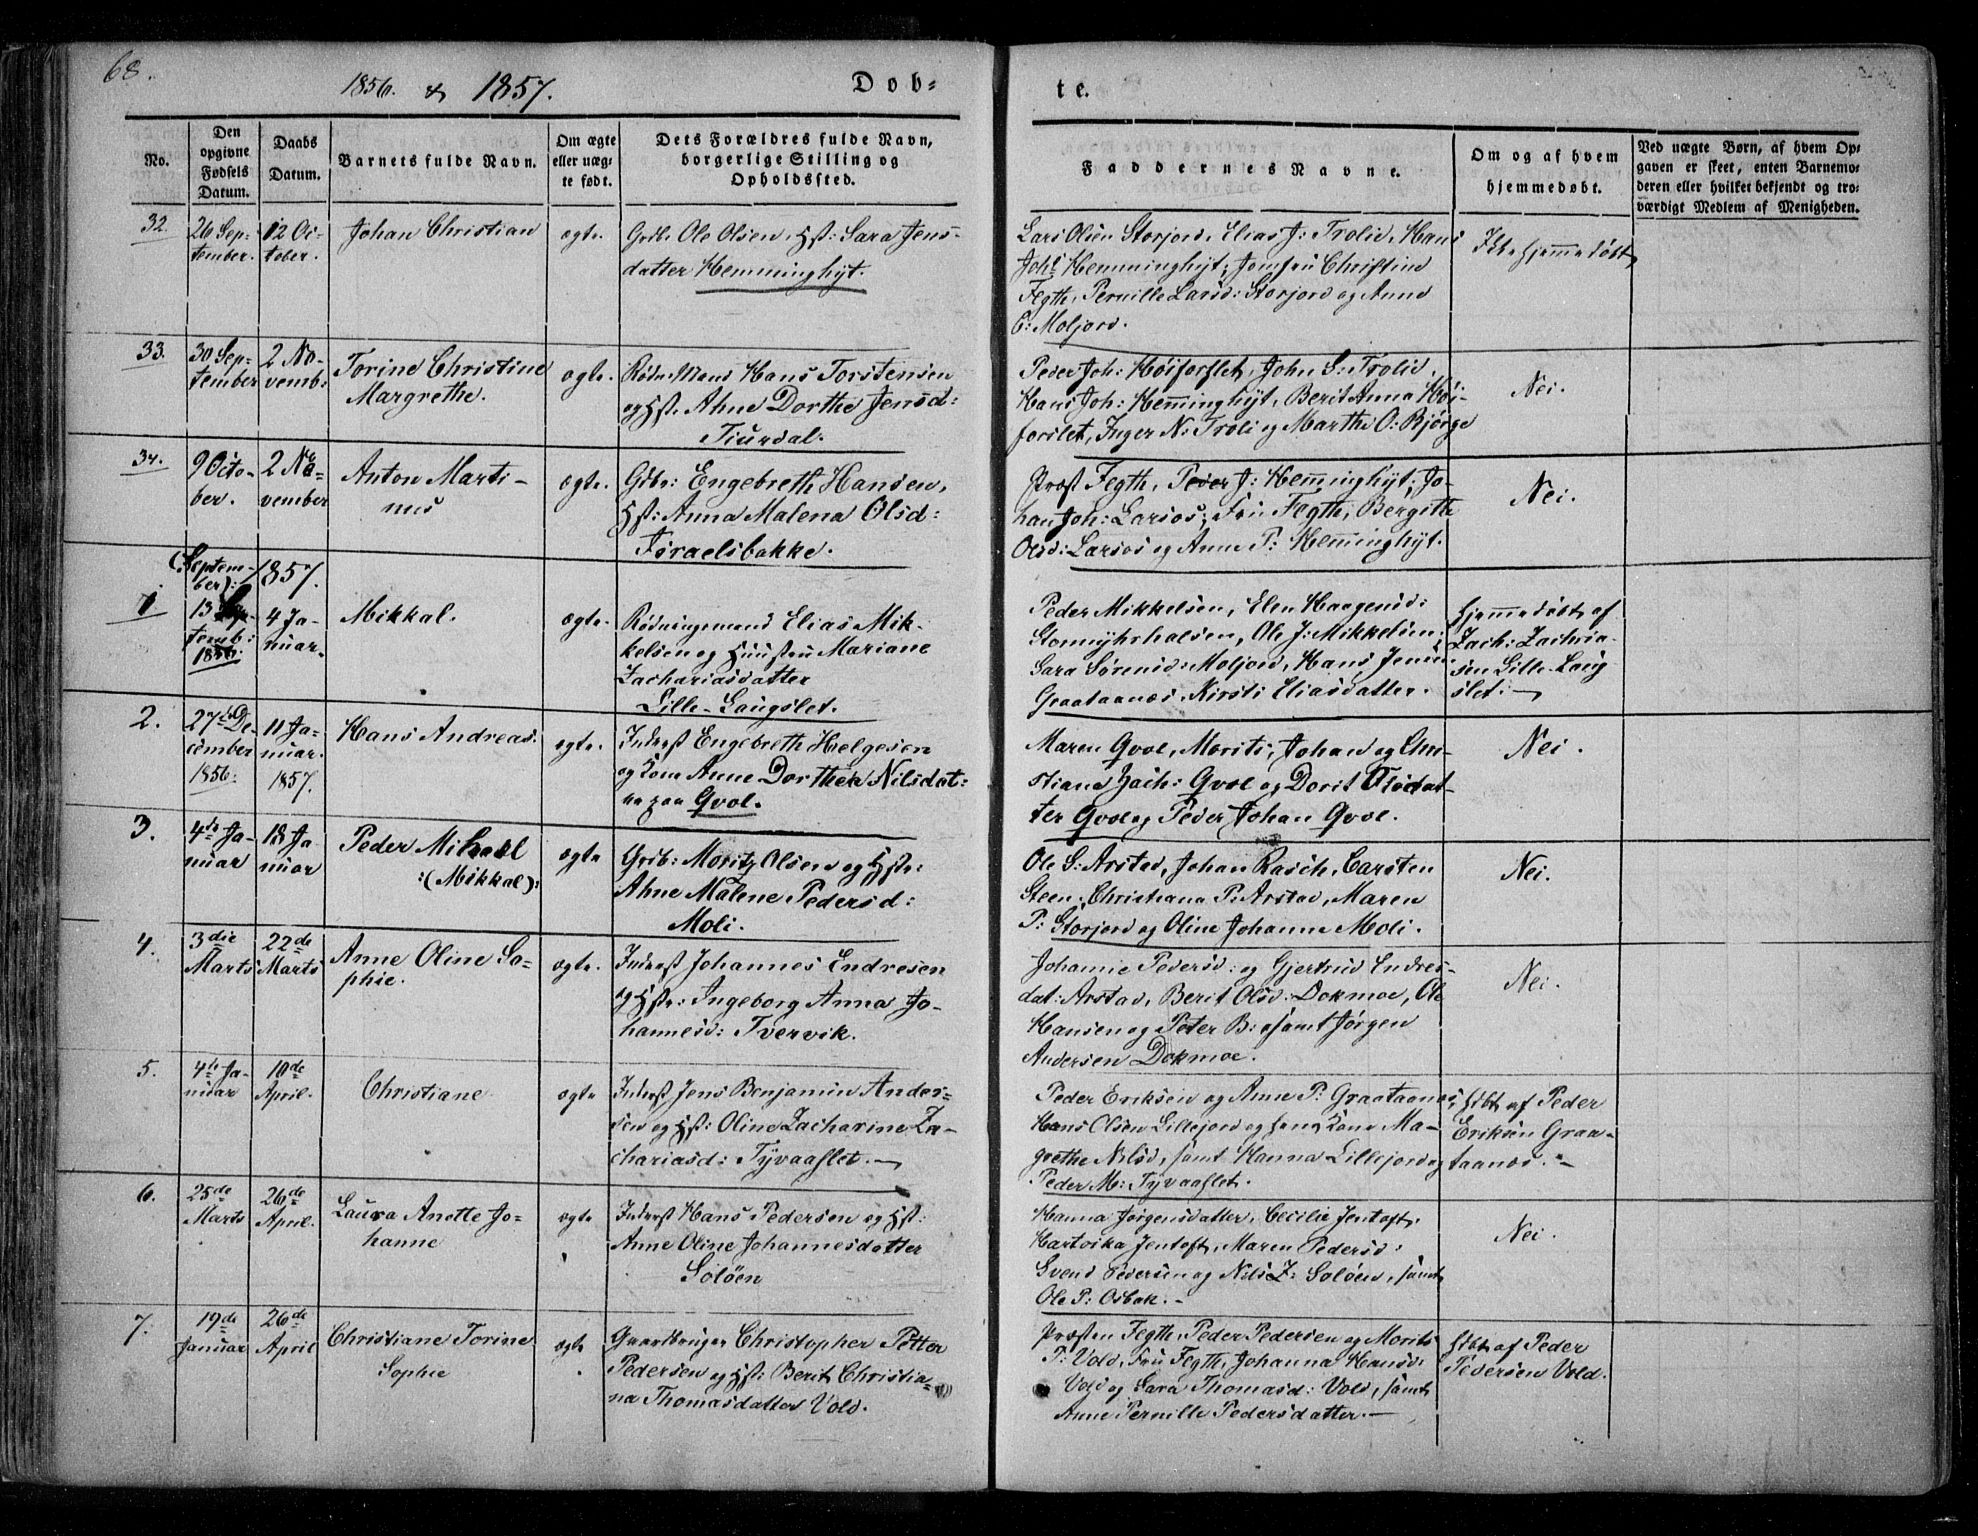 68.
1856. & 1857.
Døb=
te.
No.
Den opgivne Fødsels Datum.
Daabs Datum.
Barnets fulde Navn.
Om ægte eller uæg= te født.
Dets Forældres fulde Navn, borgerlige Stilling og Opholdssted.
Faddernes Navne.
Om og af hvem hjemmedøbt.
Ved uægte Børn, af hvem Op= gaven er skeet, enten Barnemo= deren eller hvilket bekjendt og tro= værdigt Medlem af Menigheden.
32.
26 Sep=
tember.
12 Oc=
tober.
Johan Christian
ægte.
Gdbr. Ole Olsen, Hst: Sara Jens=
datter Hemminghyt.
Lars Olsen Storjord, Elias J: Trolid, Hans
Joh: Hemminghyt; Jomfru Christine
Fegth, Pernille Larsd: Storjord og Anne
O: Moljord.
Ikke hjemmedøbt
33.
30 Sep=
tember
2 No=
vemb:
Torine Christine
Margrethe.
ægte.
Rydn.Mand Hans Torstensen
og Hst. Ahne Dorthe Jensd:
Tiurdal.
Peder Joh: Høiforslet, John S: Trolid,
Hans Joh: Hemminghyt, Berit Anna Høi=
forslet, Inger N: Troli og Marthe O: Bjørge
Nei.
34.
9 Octo=
ber.
2 No=
vember
Anton Marti=
nus
ægte.
Gdbr: Engebreth Hansen,
Hst: Anna Malena Olsd:
Israelsbakke.
Præst Fegth, Peder J: Hemminghyt; Jo=
han Joh: Larsos; Fru Fegth, Bergithe
Olsd: Larsos og Anne P: Hemminghyt.
Nei.
1857.
1
(Septem=
ber):
13 Sep=
temb:
1856.
4 Ja=
nuar.
Mikkal.
ægte.
Rødningsmand Elias Mik=
kelsen og Huustru Mariane
Zachariasdatter
Lille-Gaugslet.
Peder Mikkelsen, Elen Haagensd:
Stormyhrhalsen, Ole J: Mikkelsen;
Sara Sørensd: Moljord, Hans Jensen
Graataanes. Kirsti Eliasdatter.
Hjemmedøbt af
Zach: Zacharia=
sen Lille-Gaug
slet: —
2.
27de De=
cember
1856.
11 Ja=
nuar.
1857.
Hans Andreas.
ægte.
Inderst Engebreth Helgesen
og Kone Anne Dorthea Nilsdat=
ter paa Qvol.
Maren Qvol, Morits, Johan og Chri=
stiane Zach: Qvol og Dorit Olsdat=
ter Qvol og Peder Johan Qvol.
Nei.
3.
4de Ja=
nuar
18 Ja
nuar
Peder Mikael
:(Mikkal):
ægte
Grdb: Moritz Olsen og Hst:
Ahne Malene Pedersd:
Moli.
Ole S: Arstad, Johan Rasch, Carsten
Steen; Christiana P: Arstad, Maren
P: Storjord og Oline Johanne Moli.
Nei.
4.
3die
Marts
22de
Marts
Anne Oline So=
phie.
ægte.
Inderst Johannes Endresen
og Hst: Ingeborg Anna Jo=
hannesd: Tvervik.
Johanne Pedersd: og Gjertrud Endres=
dat: Arstad, Berit Olsd: Dokmoe, Ole
Hansen og Peter B: samt Jørgen
Andersen Dokmoe.
Nei.
5.
4de Ja=
nuar
10de
April.
Christiane.
ægte
Inderst Jens Benjamin Ander=
sen og Hst: Oline Zacharine Za=
chariasd: Tyvaaflet. —
Peder Eriksen og Anne P: Graataanes,
Hans Olsen Lillejord og hans Kone Ma=
grethe Nilsd, samt Hanna Lillejord og
Peder M: Tyvaaflet.
Hdbt af Peder
Eriksen Graa=
taanes. —
6.
25de
Marts
26de
April.
Laura Anette Jo=
hanne
ægte
Inderst Hans Pedersen og Hst:
Anne Oline Johannesdatter
Soløen
Hanna Jørgensdatter, Cecilie Jentoft,
Hartvika Jentoft, Maren Pedersd:
Svend Pedersen og Nils Z: Soløen, samt
Ole P: Osbak. —
Nei.
7.
19de
Januar
26de
April
Christiane Torine
Sophie
ægte
Gaardbruger Christopher Petter
Pedersen og Hst: Berit Christia=
na Thomasdatter Vold.
Præsten Fegth, Peder Pedersen og Morits
P: Vold, Fru Fegth, Johanna Hansd:
Vold og Sara Thomasd: Vold, samt
Anne Pernille Pedersdatter. —
Hdbt af Peder
Pedersen Vold.